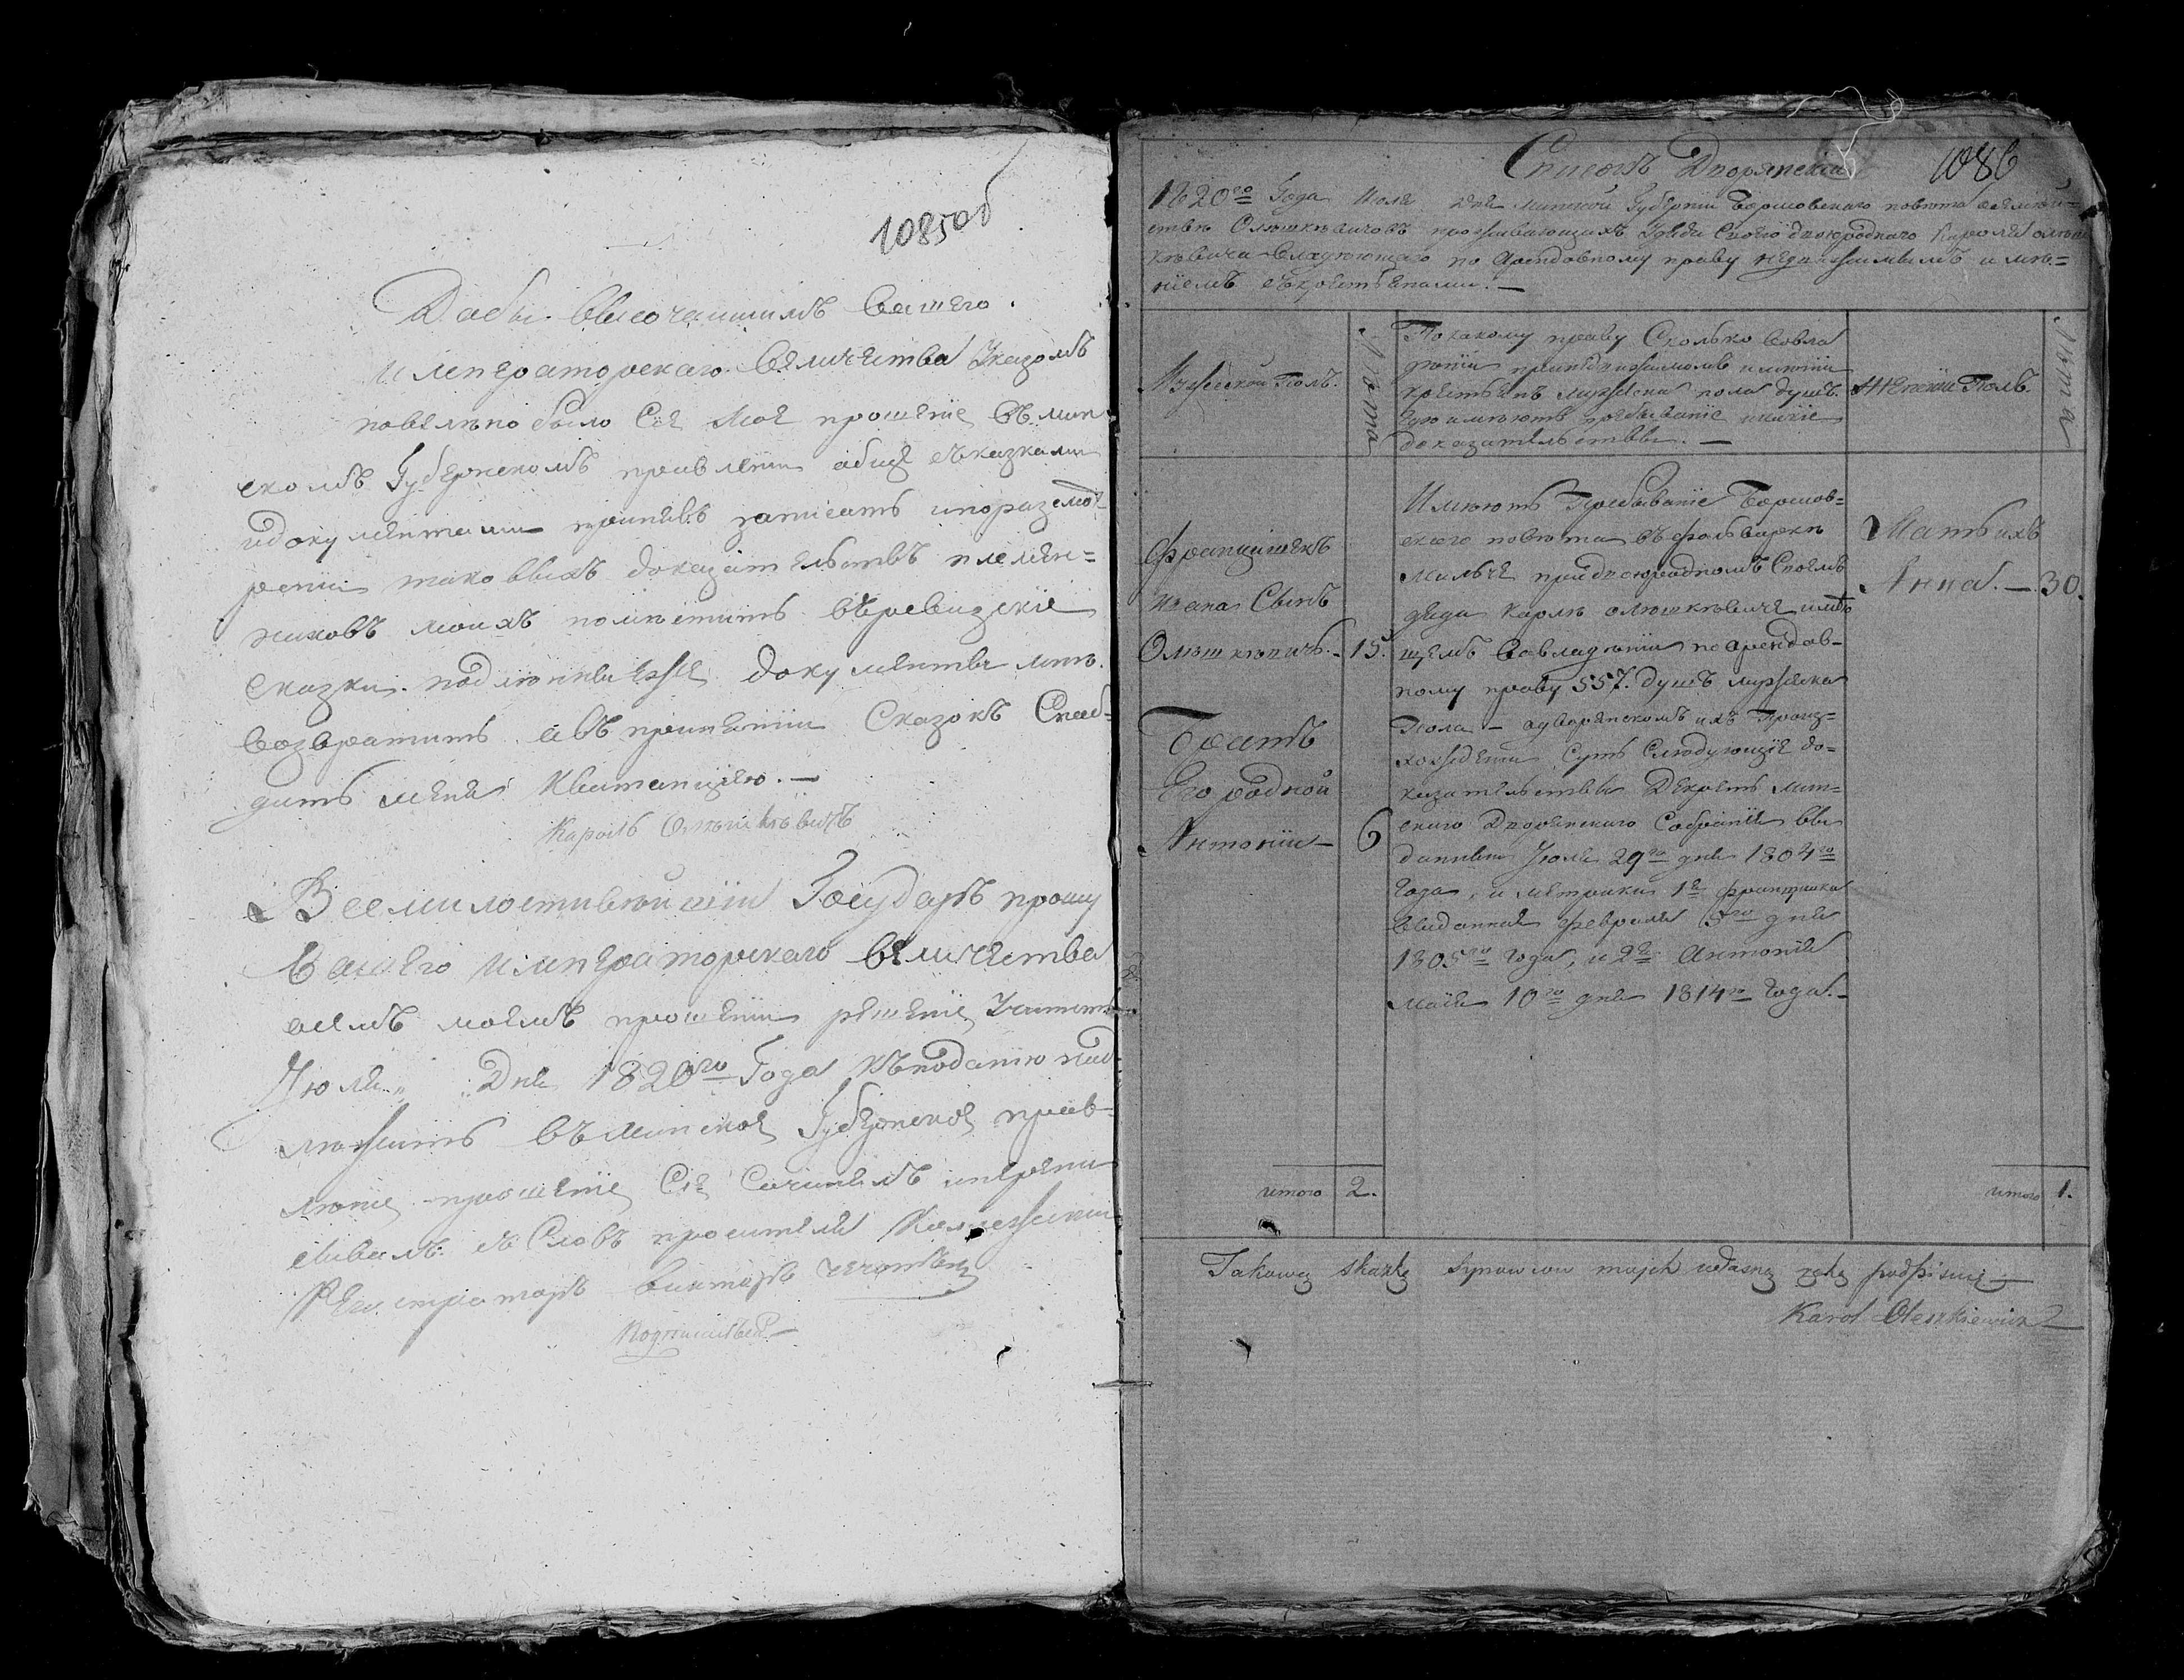 1085об
Дабы Высочайшимъ Вашего
Императорскаго Величества Указомъ
повелено было Сіе мое прошеніе въ мин
скомъ Губернскомъ правленіи обще съ сказками
и документами принявъ записать и по разсмот
реніи таковыхъ доказательствъ племян=
никовъ моихъ поместить въ ревизскіе
сказки. подлинные же документы мне
возвратить а въ принятіи Сказокъ Снаб=
дить меня квитанцією.—
Кароль Олешкевичъ
Всемилостивейшій Государь прошу
Вашего Императорскаго величества
о семъ моемъ прошеніи решеніе учинить
Іюля „ Дня 1820го Года къ поданію над
лежитъ въ минское Губернское прав=
леніе прошеніе Сіе Сочинялъ и перепи
сывалъ съ Словъ просителя Коллежскій
Регистраторъ Викторъ
1086
Списокъ Дворянскій
1820го Года Июля дня Минской Губерніи Борисовского повета о семей=
стве Олешкевичовъ проживающихъ у дяди Своего двоюродного Кароля Олеш
кевича владеющего по Арендовному праву недвижимымъ име=
ніемъ съ крестьянами.—
Мужеской Полъ.
Лета
По какому праву Сколько во вла
деніи при недвижимомъ именіи
крестьянъ мужеска пола душъ.
Где имеютъ пребываніе и какіе
доказательствы.—
Женскій Полъ.
Лета
Францишекъ
Ивана Сынъ
Олешкевичъ.- 15.
Братъ
Его родной
Антоній— 6
Имеютъ Пребываніе Борисов=
скаго повета въ фольварке
Мильче при двоюродномъ Своемъ
дяди Кароле Олешкевиче имею
щемъ во владеніи по арендов-
ному праву 557. душъ мужеска
Пола— о дворянскомъ ихъ Произ=
хожденіи Суть Следующіе до=
казательствы Декретъ мин=
скаго Дворянскаго Собранія вы
данный Іюля 29го дня 1804го
Года, и метрики 1я Францишка
выданная февраля 5го дня
1805го года, и 2я Антонія
Маія 10го дня 1814го Года.-
Мать ихъ
Анна.—30.
итого 2.
итого 1.
Takową skazkę Synowcow moich własną ręką podpisuię—
Karol Oleszkiewicz